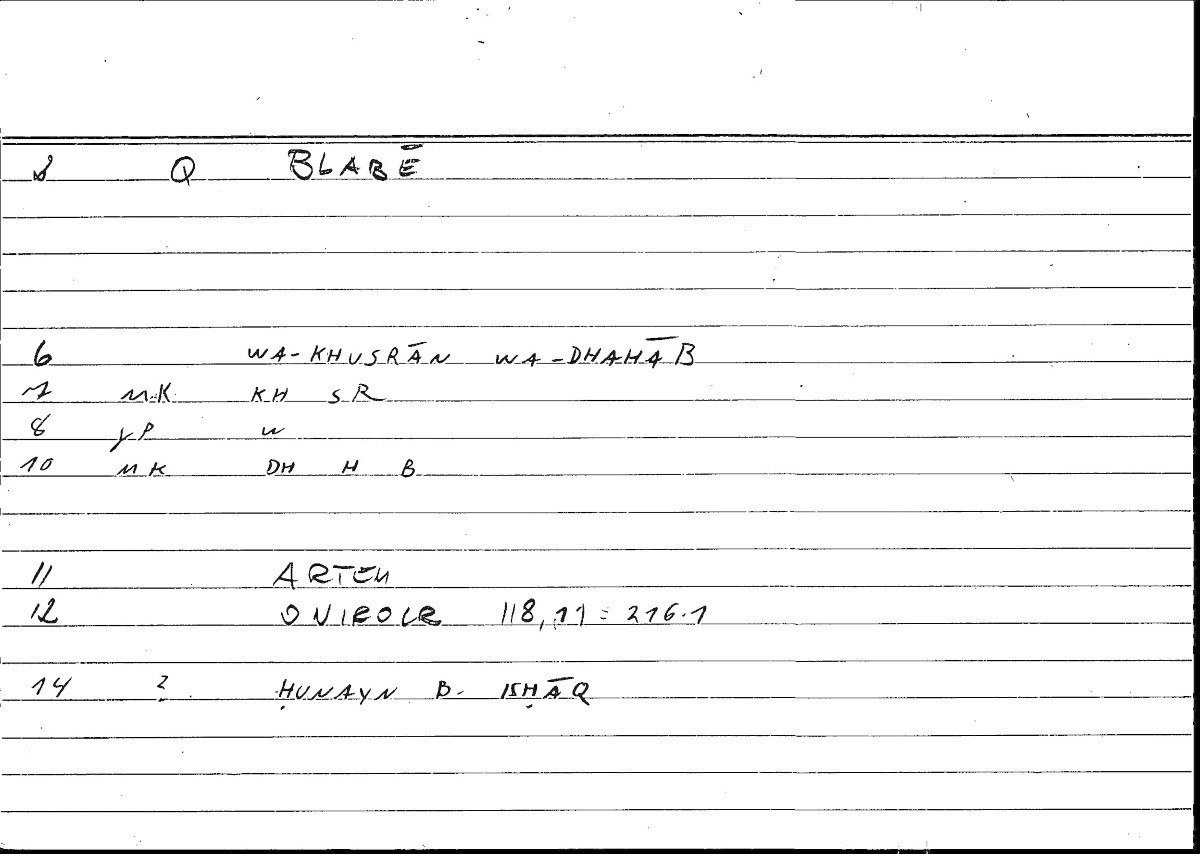 Q BLABĒ
6 WA-KHUSRĀN WA-DHAHĀB
7 MK KH SR
8 YP W
10 MK DH H B
11 ARTEM
12 ONIROCR 118,11 = 216.1
14 2 ḤUNAYN B. ISḤĀQ